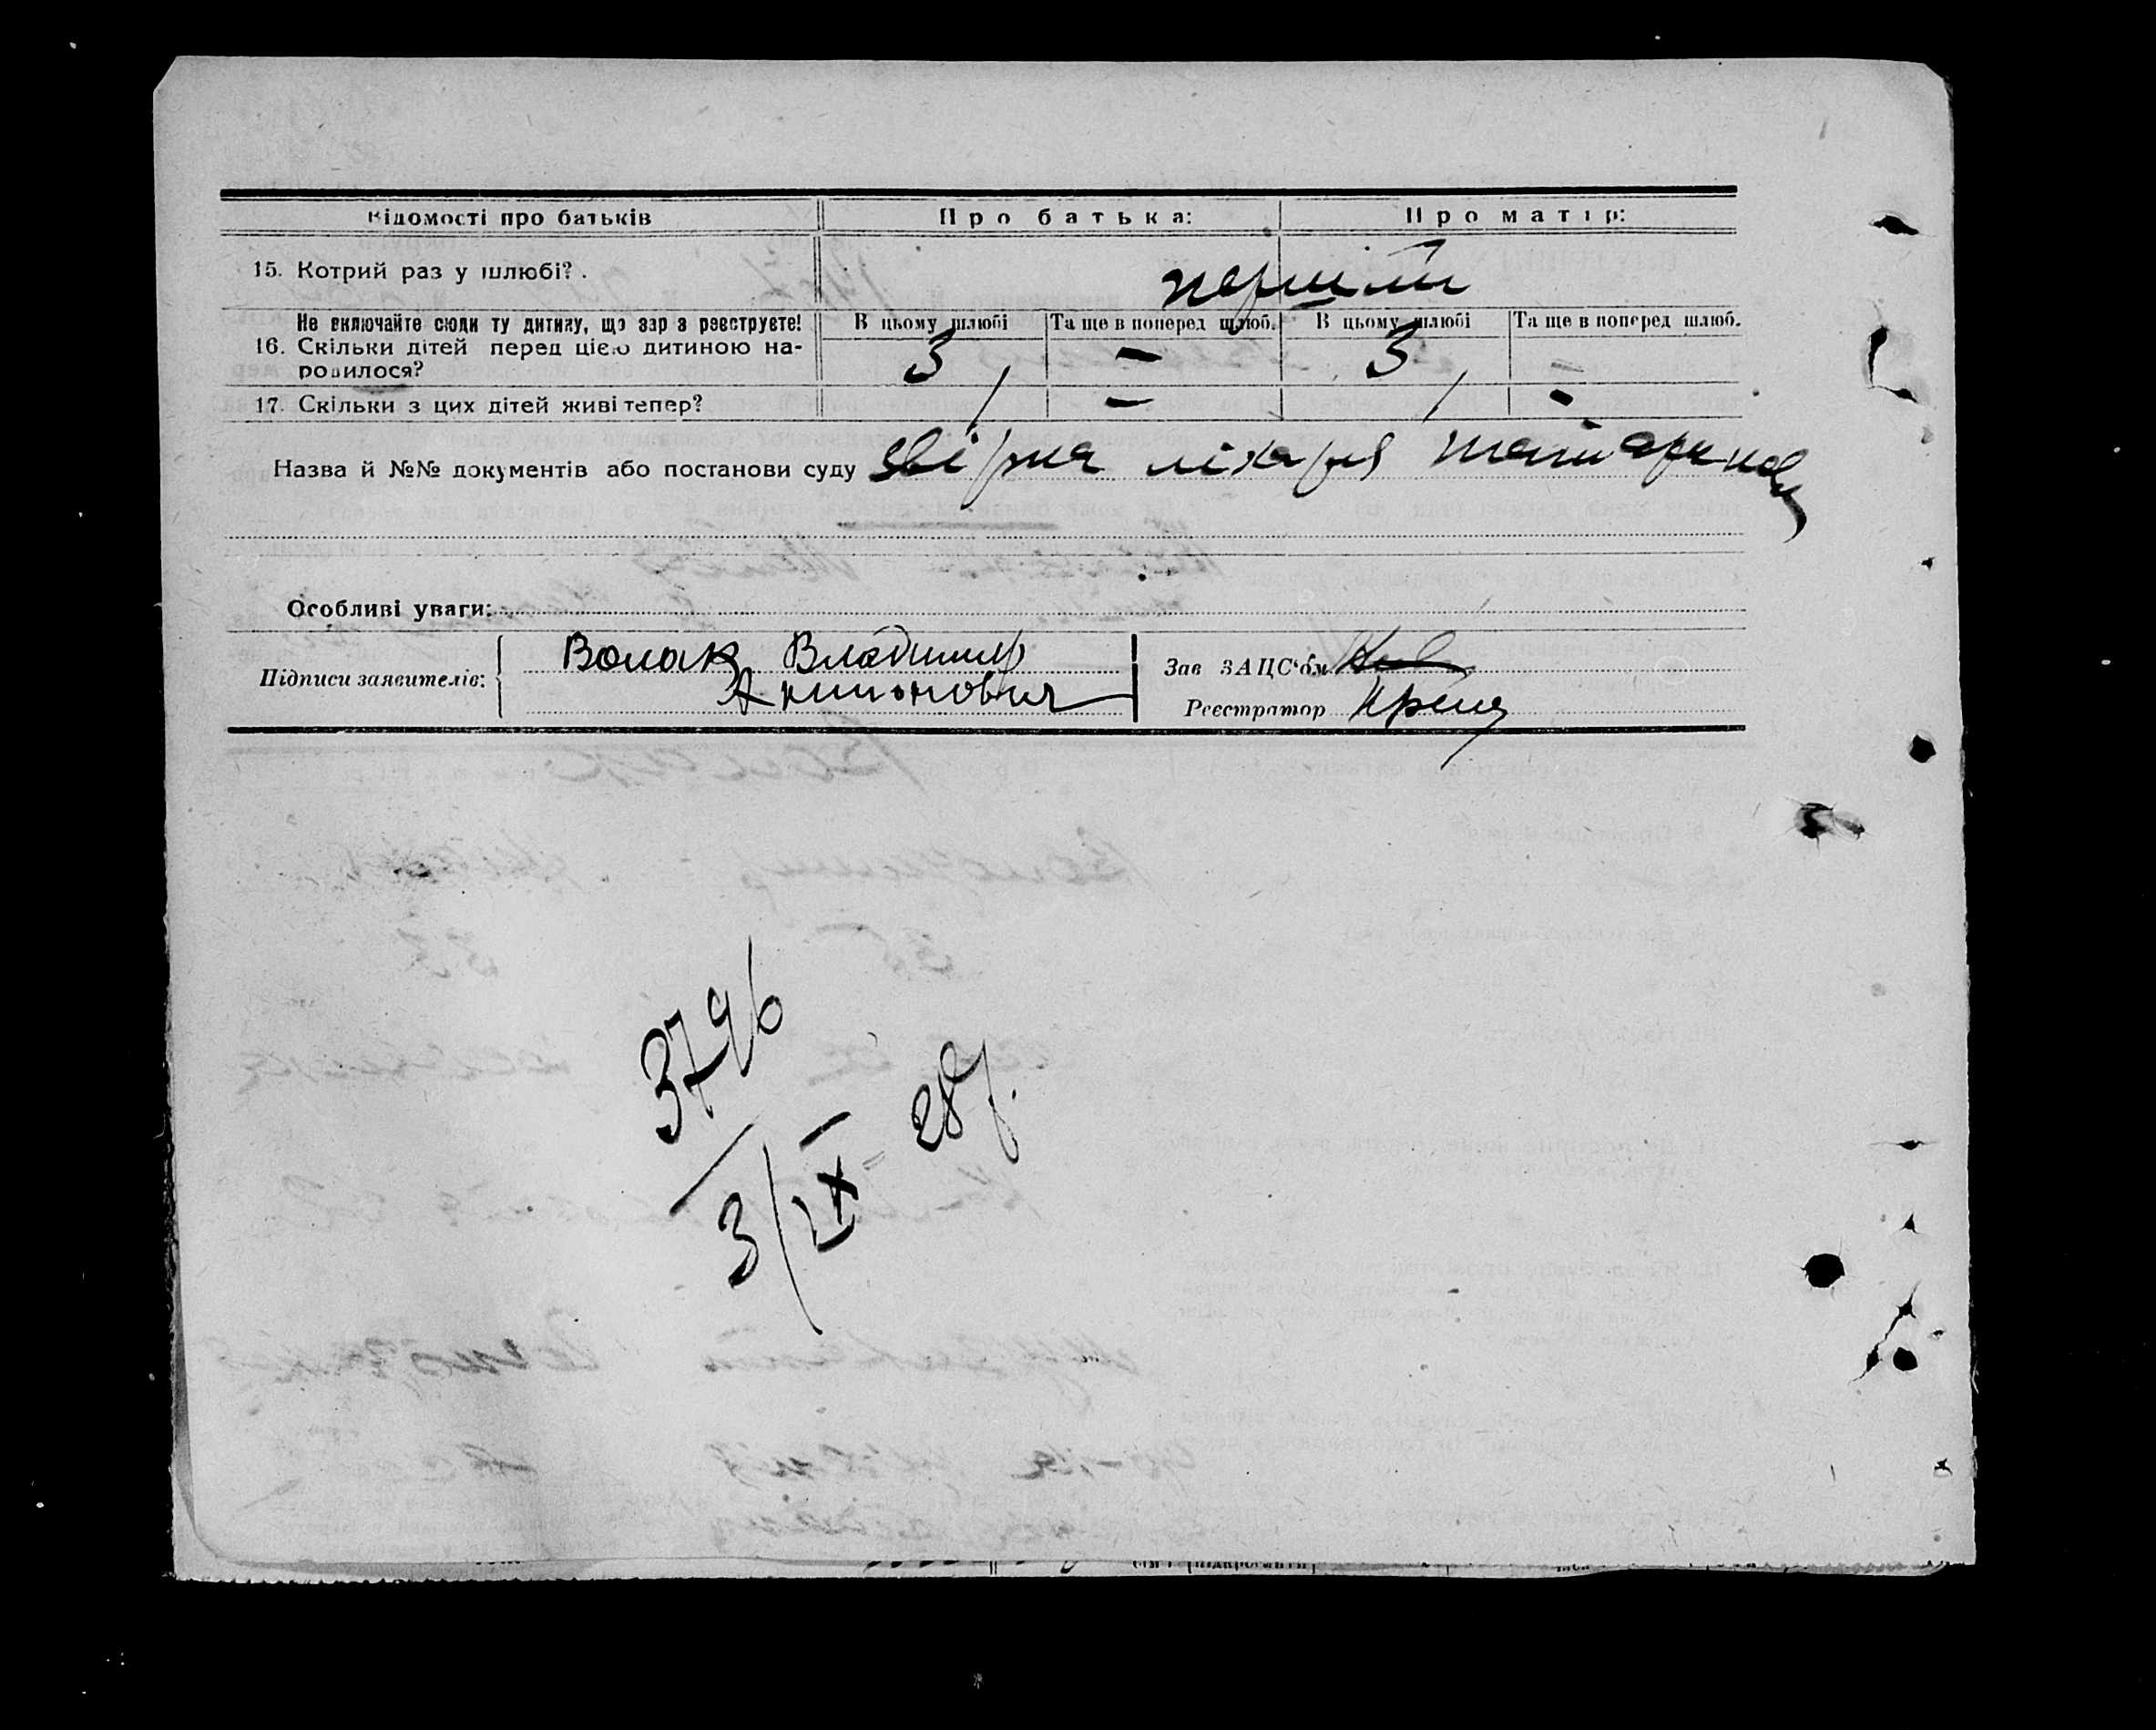 Відомості про батьків Про батька: Про матір:
15. Котрий раз у шлюбі? перший
Не включайте сюди ту дитину, що зараз реєструєте!
16. Скільки дітей перед цією дитиною на-
родилося?
В цьому шлюбі Та ще в поперед шлюб. В цьому шлюбі Та ще в поперед шлюб.
3 — 3 —
17. Скільки з цих дітей живі тепер? / — / -
Назва й №№ документів або постанови суду лікаря
Особливі уваги:
Підписи заявителів: Волак Владимир
Антонович
Зав ЗАЦС'ом
Реєстратор
3796
3/IX 28 р.